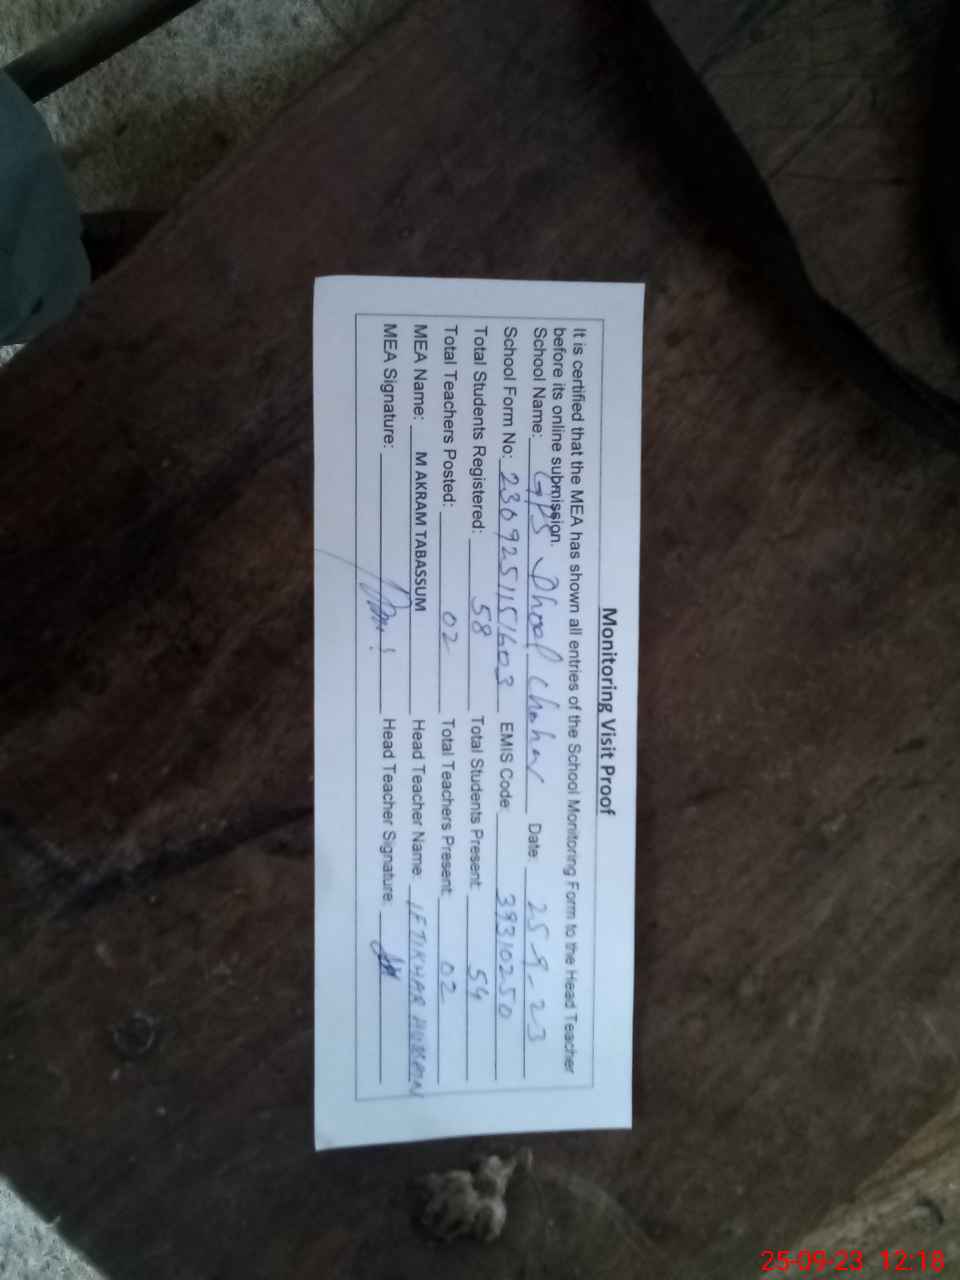 Monitoring Visit Proof
It is certified that the MEA has shown all entries of the School Monitoring Form to the Head Teacher
before its online submission.
School Name: GPS Dhoal Chahar Date: 25-9-23
School Form No: 2309251151603 EMIS Code: 39310250
Total Students Registered: 58 Total Students Present: 54
Total Teachers Posted: 02 Total Teachers Present: 02
MEA Name: M AKRAM TABASSUM Head Teacher Name: IFTIKHAR HUSSAIN
MEA Signature: Head Teacher Signature:
25-09-23 12:18